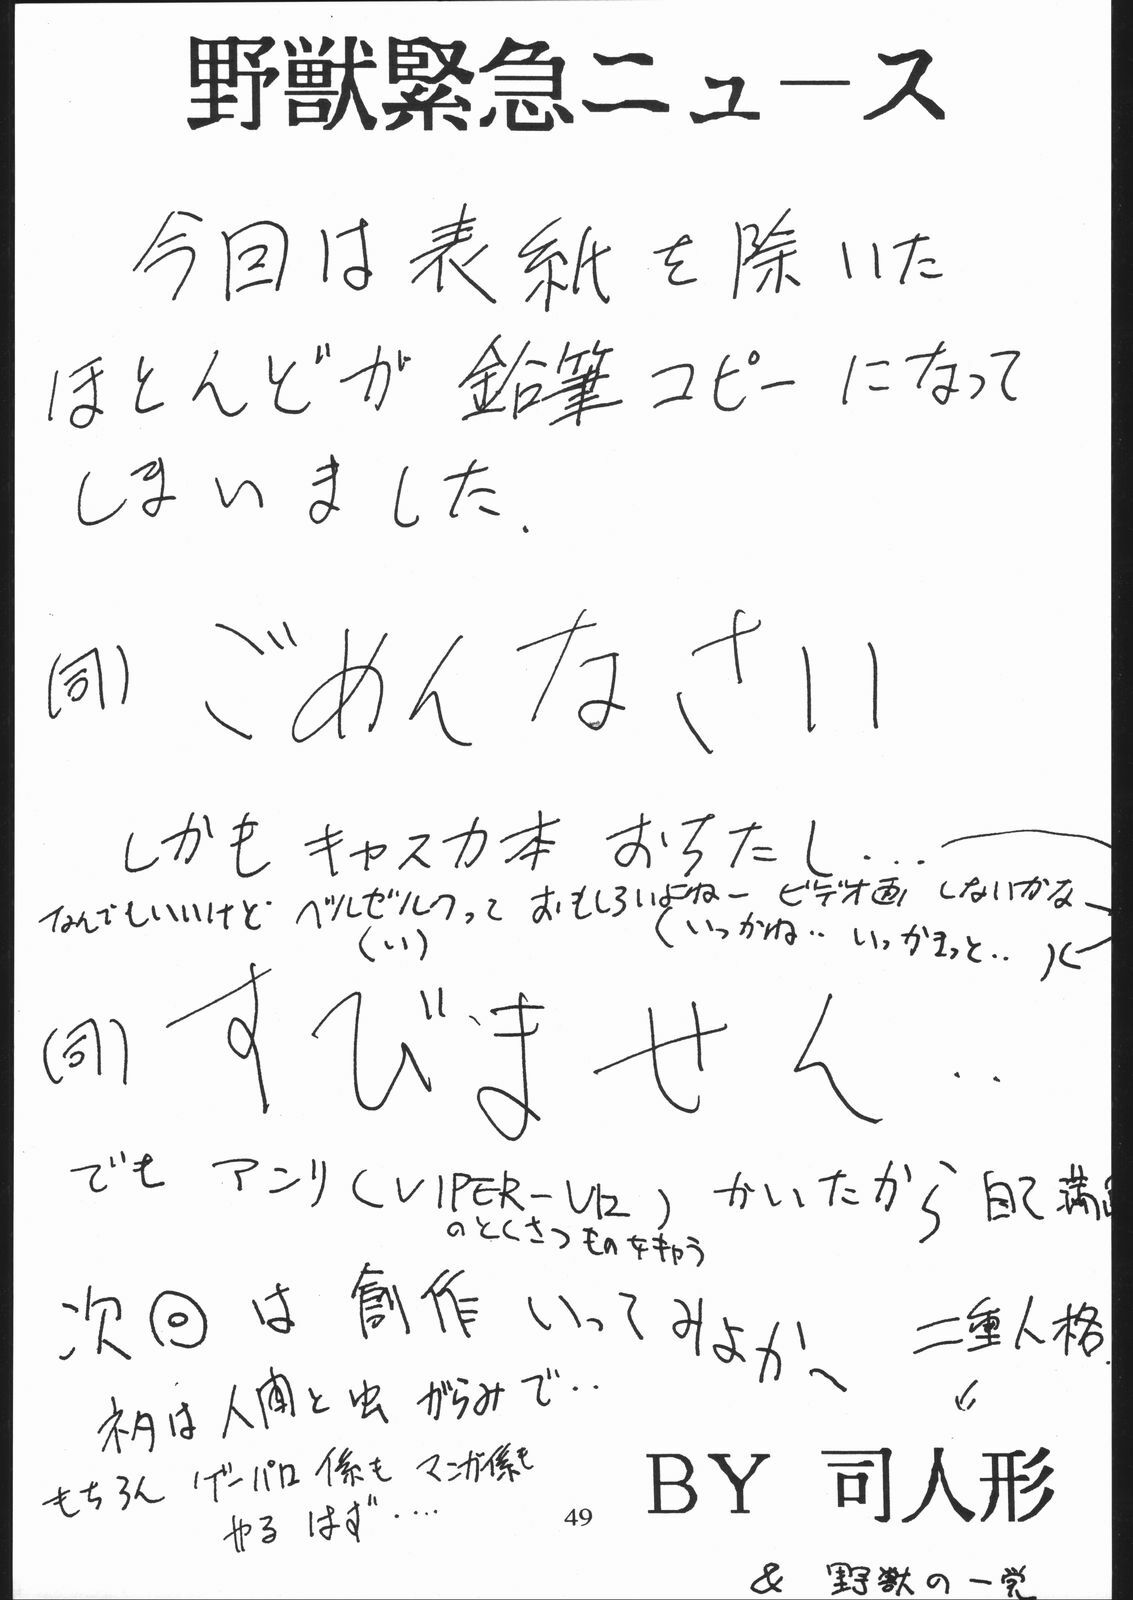 野獣緊急ニュース
今回は表紙を除いた
ほとんどが鉛筆コピーになって
しまいました.
(司) ごめんなさい
しかもキャスカ本おちたし...
なんでもいいけどベルセルクっておもしろいよねー ビデオ画しないかな
(い) (いっかね‥ いっかまっと‥
(司) すびません‥
でもアンリ(VIPER-V12)かいたから自己満足
のとくさつものをキャラ
次回は創作いってみよかへ 二重人格.
ネタは人間と虫がらみで‥
もちろんゲーパロ係もマンガ係も
やるはず‥‥
BY 司人形
49
& 野獣の一党